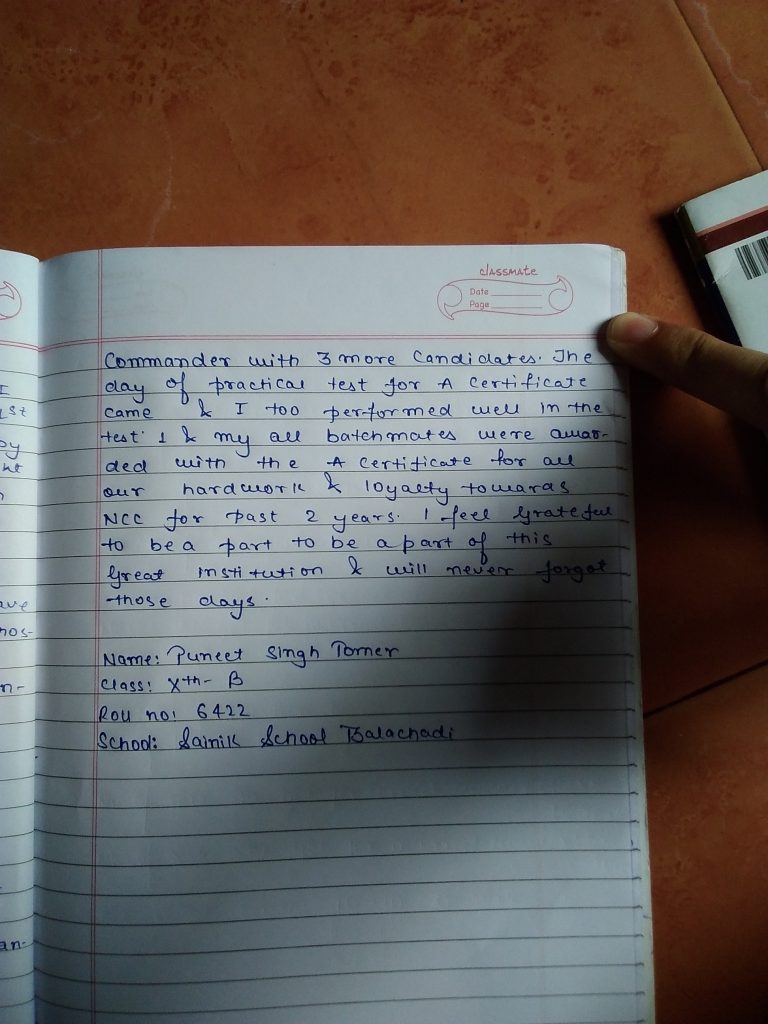 classmate
Date
Page
Commander with 3 more Candidates. The
day of practical test for A Certificate
came & I too performed well in the
test. I & my all batchmates were awar-
ded with the A Certificate for all
our hardwork & loyalty towards
NCC for past 2 years. I feel Grateful
to be a part to be a part of this
Great institution & will never forgot
those days.
Name: Puneet Singh Tomer
Class: Xth- B
Roll no: 6422
School: Sainik School Balachadi